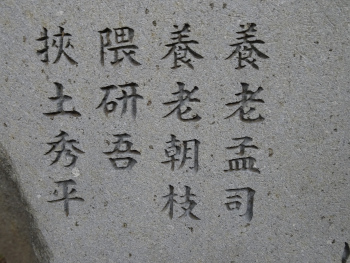 養老孟司
養老朝枝
隈研吾
挾土秀平